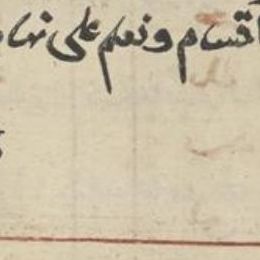 اقسام ونعلم على نها